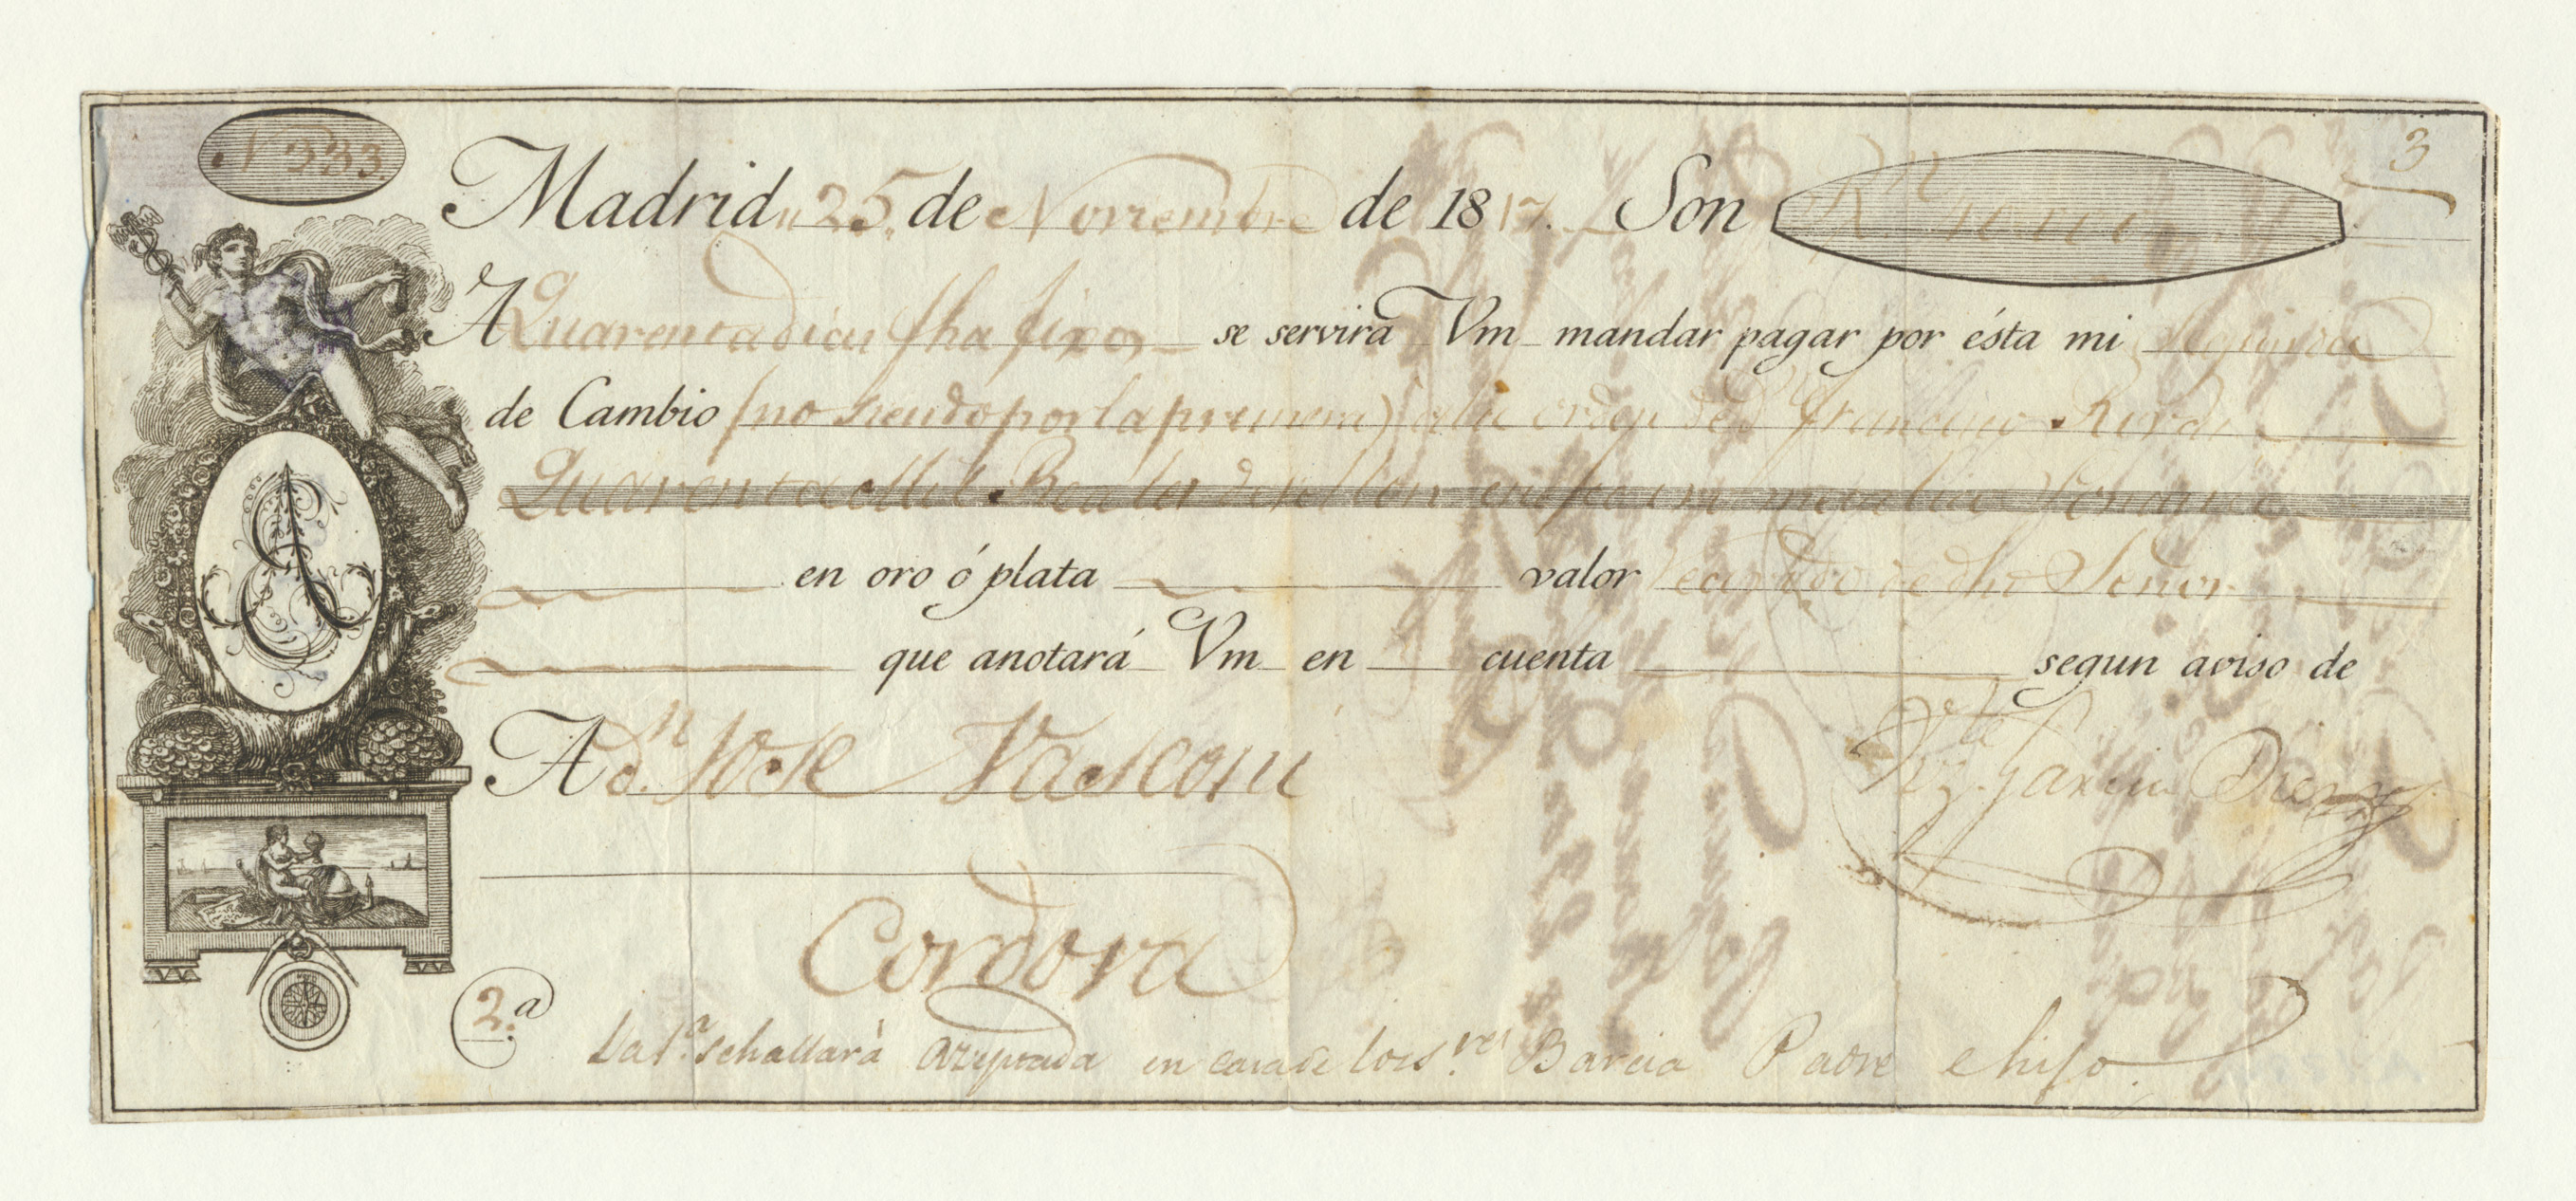 N 333.
3
Madrid 25. de Noviembre de 1817. Son Rn
A Quarenta dias fha fixos se servirá Vm mandar pagar por ésta mi segunda
de Cambio (no siendo por la primera) a la orden de Dn Francisco
Quarenta Mil Reales de vellon en metalico sonante
en oro ó plata valor de dho Señor
que anotará Vm en cuenta segun aviso de
A dn Jose Vasconi
Garcia Diez
Cordova
2.a
La 1.a se hallará azeptada en casa de los S.res Barcia Padre e hijo.